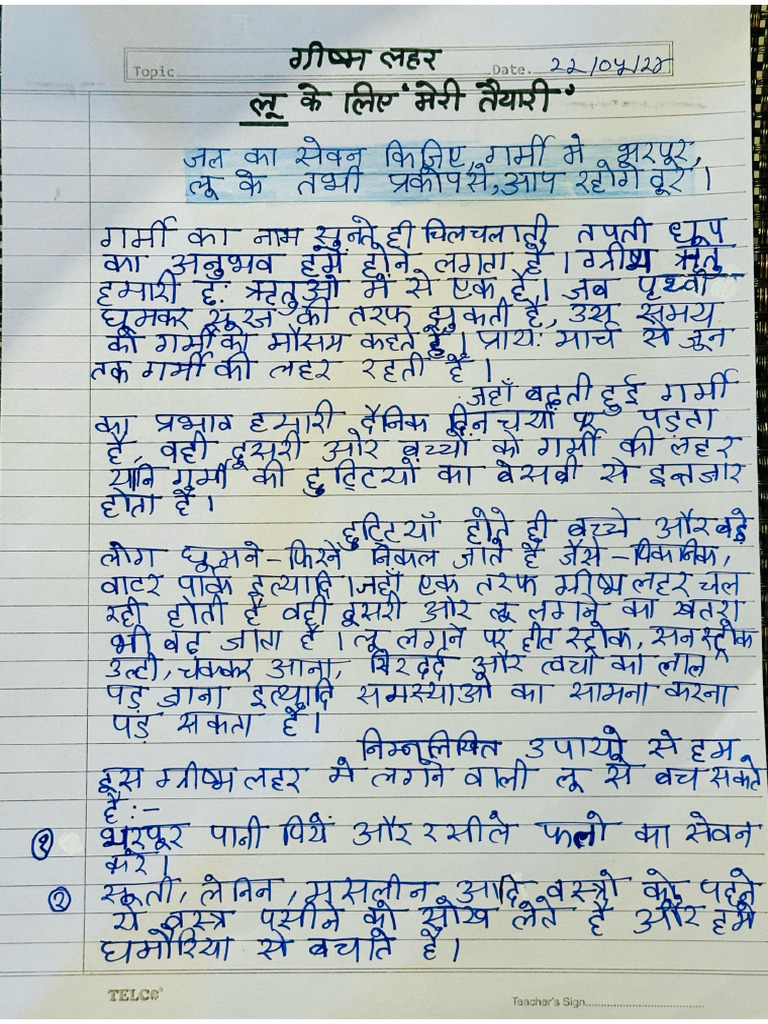 ग्रीष्म लहर
Topic Date. 22/04/25
लू के लिए 'मेरी तैयारी'
जल का सेवन किजिए, गर्मी मे भरपूर,
लू के तभी प्रकोप से, आप रहोगे दूर।
गर्मी का नाम सुनते ही चिलचलाती, तपती धूप
का अनुभव हमें होने लगता है। ग्रीष्म ऋतु
हमारी छः ऋतुओ में से एक है। जब पृथ्वी
घूमकर सूरज की तरफ झुकती है, उस समय
को गर्मी का मौसम कहते है। प्रायः मार्च से जून
तक गर्मी की लहर रहती है।
जहाँ बढ़ती हुई गर्मी
का प्रभाव हमारी दैनिक दिनचर्या पर पड़ता
है, वही दूसरी ओर बच्चों को गर्मी की लहर
यानि गर्मी की छुट्टियों का बेसब्री से इन्तजार
होता है।
छुट्टियाँ होते ही बच्चे और बड़े
लोग घूमने-फिरने निकल जाते है जैसे - पिकनिक,
वाटर पार्क इत्यादि। जहाँ एक तरफ ग्रीष्म लहर चल
रही होती है वही दूसरी ओर लू लगने का खतरा
भी बढ़ जाता है। लू लगने पर हीट स्ट्रोक, सनस्ट्रोक
उल्टी, चक्कर आना, सिरदर्द और त्वचा का लाल
पड़ जाना इत्यादि समस्याओ का सामना करना
पड़ सकता है।
निम्नलिखित उपायो से हम
इस ग्रीष्म लहर मे लगने वाली लू से बच सकते
है :-
① भरपूर पानी पियें और रसीले फलो का सेवन
करे।
② सूती, लेनिन, मसलीन आदि वस्त्रो को पहने
ये वस्त्र पसीने को सोख लेते है और हमे
घमौरिया से बचाते है।
TELCO
Teacher's Sign